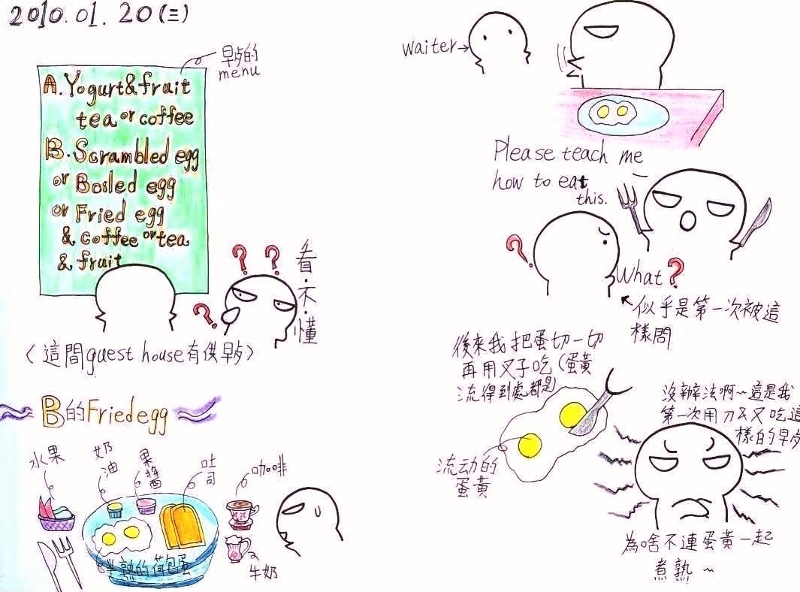 2010.01.20(三)
早歺的
menu
A.Yogurt&fruit
tea or coffee
B.Scrambled egg
or Boiled egg
or Fried egg
& coffee or tea
& fruit
? ?
?
看·不·懂
〈這間guest house有供早歺〉
B的Fried egg
水果
奶油
果醬
吐司
咖啡
半熟的荷包蛋
牛奶
waiter→
Please teach me
how to eat
this.
?
What?
似乎是第一次被這
樣問
後來我把蛋切一切
再用叉子吃(蛋黃
流得到處都是)
流动的
蛋黃
沒辦法啊~這是我
第一次用刀&叉吃這
樣的早歺
為啥不連蛋黃一起
煮熟~